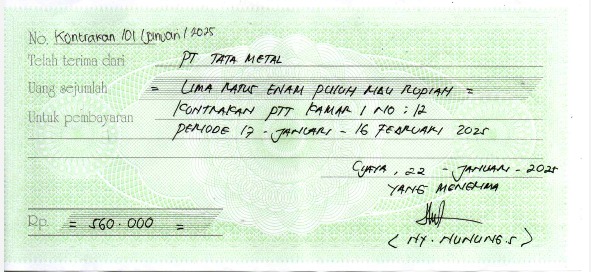 No. Kontrakan 101/Januari/2025
Telah terima dari PT TATA METAL
Uang sejumlah = LIMA RATUS ENAM PULUH RIBU RUPIAH =
Untuk pembayaran KONTRAKAN PTT KAMAR / NO : 12
PERIODE 17 - JANUARI - 16 FEBRUARI 2025
22 - JANUARI - 2025
YANG MENERIMA
Rp. = 560.000 =
( NY. NUNUNG.S )